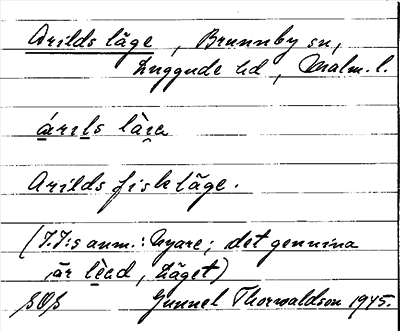 Arilds läge, Brunnby sn,
Luggude hd, Malm. l.
árıls lä̀ıa
Arilds fiskeläge.
(I.I:s anm.: Nyare; det genuina
är lèad, Läget)
Gunnel Thorwaldson 1945.